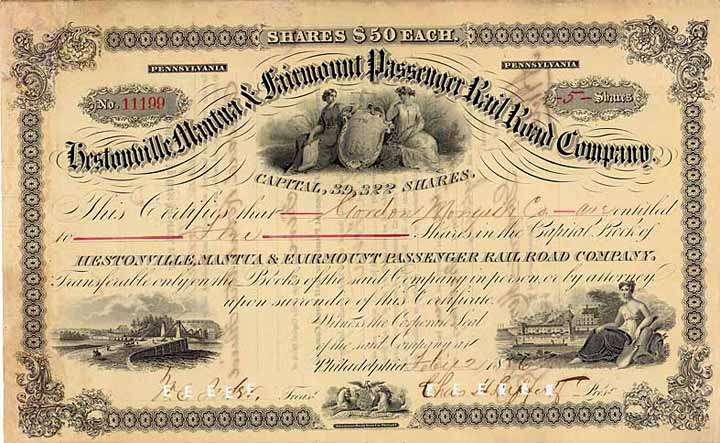 SHARES $50 EACH.
PENNSYLVANIA PENNSYLVANIA
No. 11199 -5- Shares
Hestonville, Mantua & Fairmount Passenger Rail Road Company.
CAPITAL, 39,322 SHARES.
This Certifies that Gordon Co are entitled
to five Shares in the Capital Stock of
HESTONVILLE, MANTUA & FAIRMOUNT PASSENGER RAIL ROAD COMPANY,
Transferable only on the Books of the said Company in person, or by attorney
upon surrender of this Certificate.
Witness the Corporate Seal
of the said Company at
Philadelphia
Treas. Pres.